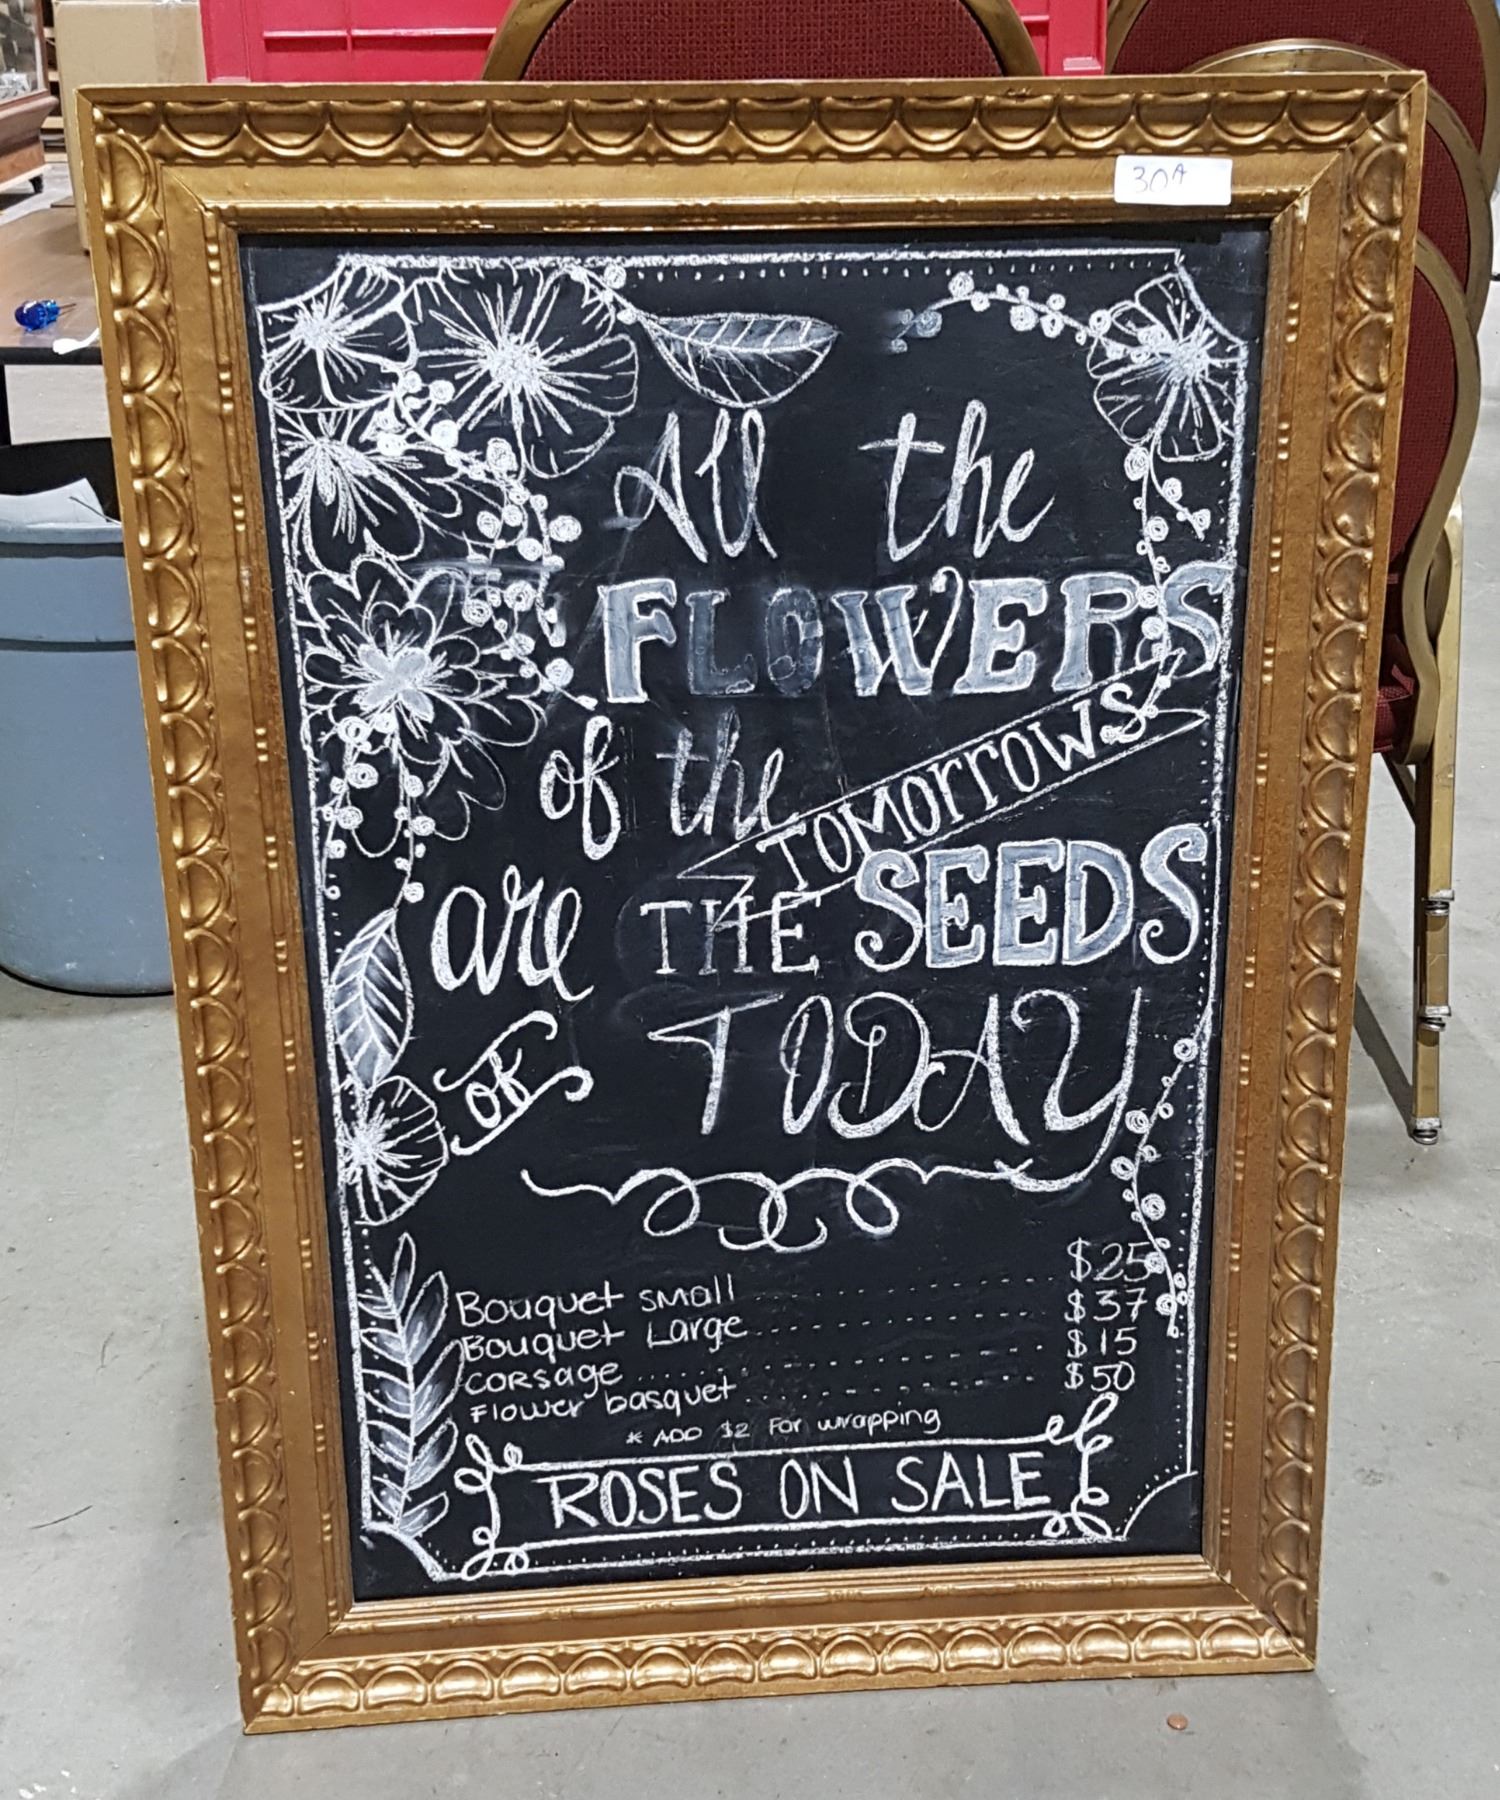 30A
All the
FLOWERS
of the TOMORROWS
are THE SEEDS
of TODAY
Bouquet small $25
Bouquet Large $37
corsage $15
Flower basquet $50
* ADD $2 For wrapping
ROSES ON SALE